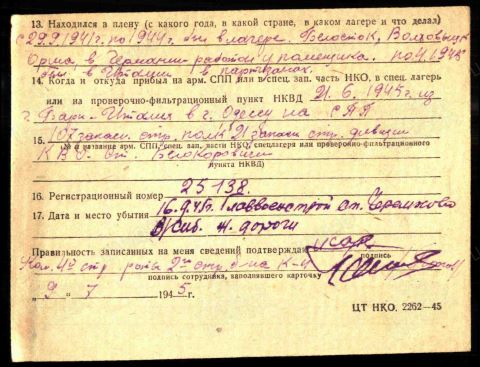 13. Находился в плену (с какого года, в какой стране, в каком лагере и что делал)
с 29.9.1941г. по 1944г. был в лагере. Белосток,
в Германии работал у помещика. по 4 1945
был в Италии в партизанах.
14. Когда и откуда прибыл на арм. СПП или в спец. зап. часть НКО, в спец. лагерь
или на проверочно-фильтрационный пункт НКВД 21.6.1945г. из
г. Италия в г. Одессу на СПП
15. 107 запасн. стр. полк 21 запасн стр. дивизии
(№ и название арм. СПП, спец. зап. части НКО, спецлагеря или проверочно-фильтрационного
КВО ст. Белокоровичи
пункта НКВД)
16. Регистрационный номер 25138.
17. Дата и место убытия 16.9.45г. Главвоенстрой ст. Черемхово
В/Сиб. ж. дороги
Правильность записанных на меня сведений подтверждаю
подпись
Ком. 4й стр роты 2го стр. б-на К-н
подпись сотрудника, заполнявшего карточку
„ 9 „ 7 1945 г.
ЦТ НКО. 2262—45